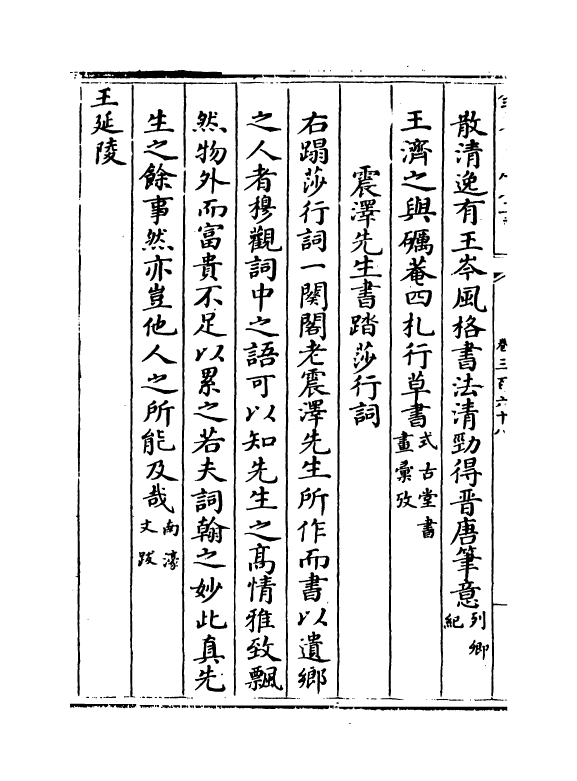 散清逸有王岑風格書法清勁得晋唐筆意列卿紀
王濟之與礪菴四札行草書式古堂書畫彙攷
震澤先生書踏莎行詞
右蹋莎行詞一闋閣老震澤先生所作而書以遺鄉
之人者穆觀詞中之語可以知先生之髙情雅致飄
然物外而富貴不足以累之若夫詞翰之妙此真先
生之餘事然亦豈他人之所能及哉南濠文跋
王延陵
卷三百六十八